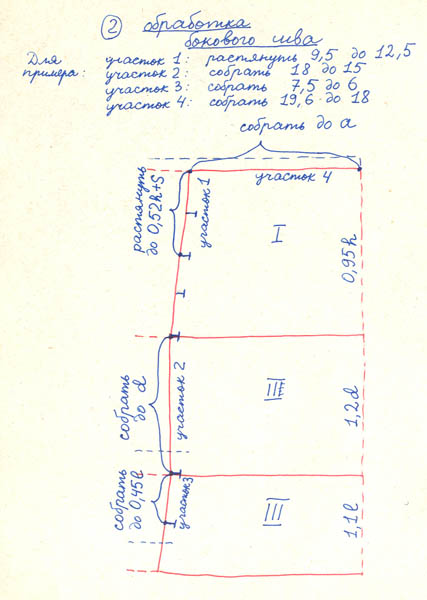 2 обработка
бокового шва
Для примера:
участок 1: растянуть 9,5 до 12,5
участок 2: собрать 18 до 15
участок 3: собрать 7,5 до 6
участок 4: собрать 19,6 до 18
собрать до а
участок 4
растянуть
до 0,52h+S
участок 1
I
0,95h
собрать
до d
участок 2
1,2d
собрать
до 0,45l
участок 3
III
1,1l